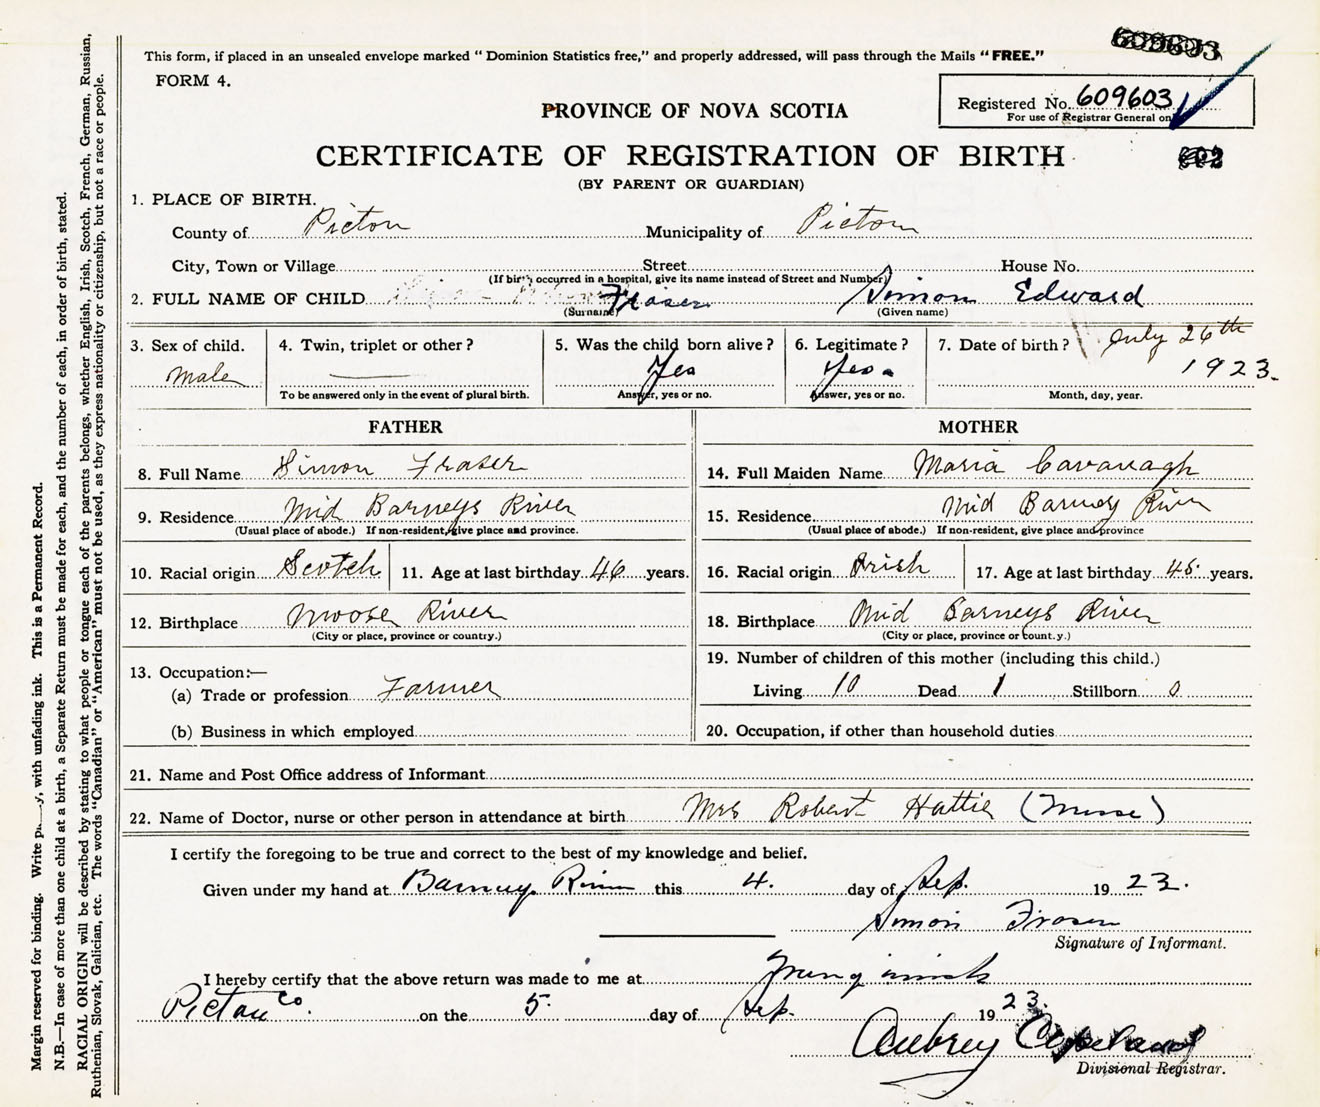 This form, if placed in an unsealed envelope marked "Dominion Statistics free," and properly addressed, will pass through the Mails "FREE."
FORM 4.
PROVINCE OF NOVA SCOTIA
Registered No. 609603
For use of Registrar General only
CERTIFICATE OF REGISTRATION OF BIRTH
(BY PARENT OR GUARDIAN)
1. PLACE OF BIRTH.
County of Pictou Municipality of Pictou
City, Town or Village Street House No.
(If birth occurred in a hospital, give its name instead of Street and Number)
2. FULL NAME OF CHILD Fraser Simon Edward
(Surname) (Given name)
3. Sex of child. 4. Twin, triplet or other? 5. Was the child born alive? 6. Legitimate? 7. Date of birth? July 26th
Male Yes Yes 1923.
To be answered only in the event of plural birth. Answer, yes or no. Answer, yes or no. Month, day, year.
FATHER MOTHER
8. Full Name Simon Fraser 14. Full Maiden Name Maria Cavanagh
9. Residence Mid Barneys River 15. Residence Mid Barneys River
(Usual place of abode.) If non-resident, give place and province. (Usual place of abode.) If non-resident, give place and province
10. Racial origin Scotch 11. Age at last birthday 46 years. 16. Racial origin Irish 17. Age at last birthday 45 years.
12. Birthplace Moose River 18. Birthplace Mid Barneys River
(City or place, province or country.) (City or place, province or count.y.)
13. Occupation:— 19. Number of children of this mother (including this child.)
(a) Trade or profession Farmer Living 10 Dead 1 Stillborn 0
(b) Business in which employed 20. Occupation, if other than household duties
21. Name and Post Office address of Informant
22. Name of Doctor, nurse or other person in attendance at birth Mrs Robert Hattie (Nurse)
I certify the foregoing to be true and correct to the best of my knowledge and belief.
Given under my hand at Barneys River this 4. day of Sep. 1923.
Simon Fraser
Signature of Informant.
I hereby certify that the above return was made to me at
Pictou Co. on the 5. day of Sep. 1923.
Aubrey Copeland
Divisional Registrar.
Margin reserved for binding. Write with unfading ink. This is a Permanent Record.
N.B.—In case of more than one child at a birth, a Separate Return must be made for each, and the number of each, in order of birth, stated.
RACIAL ORIGIN will be described by stating to what people or tongue each of the parents belongs, whether English, Irish, Scotch, French, German, Russian,
Ruthenian, Slovak, Galician, etc. The words "Canadian" or "American" must not be used, as they express nationality or citizenship, but not a race or people.